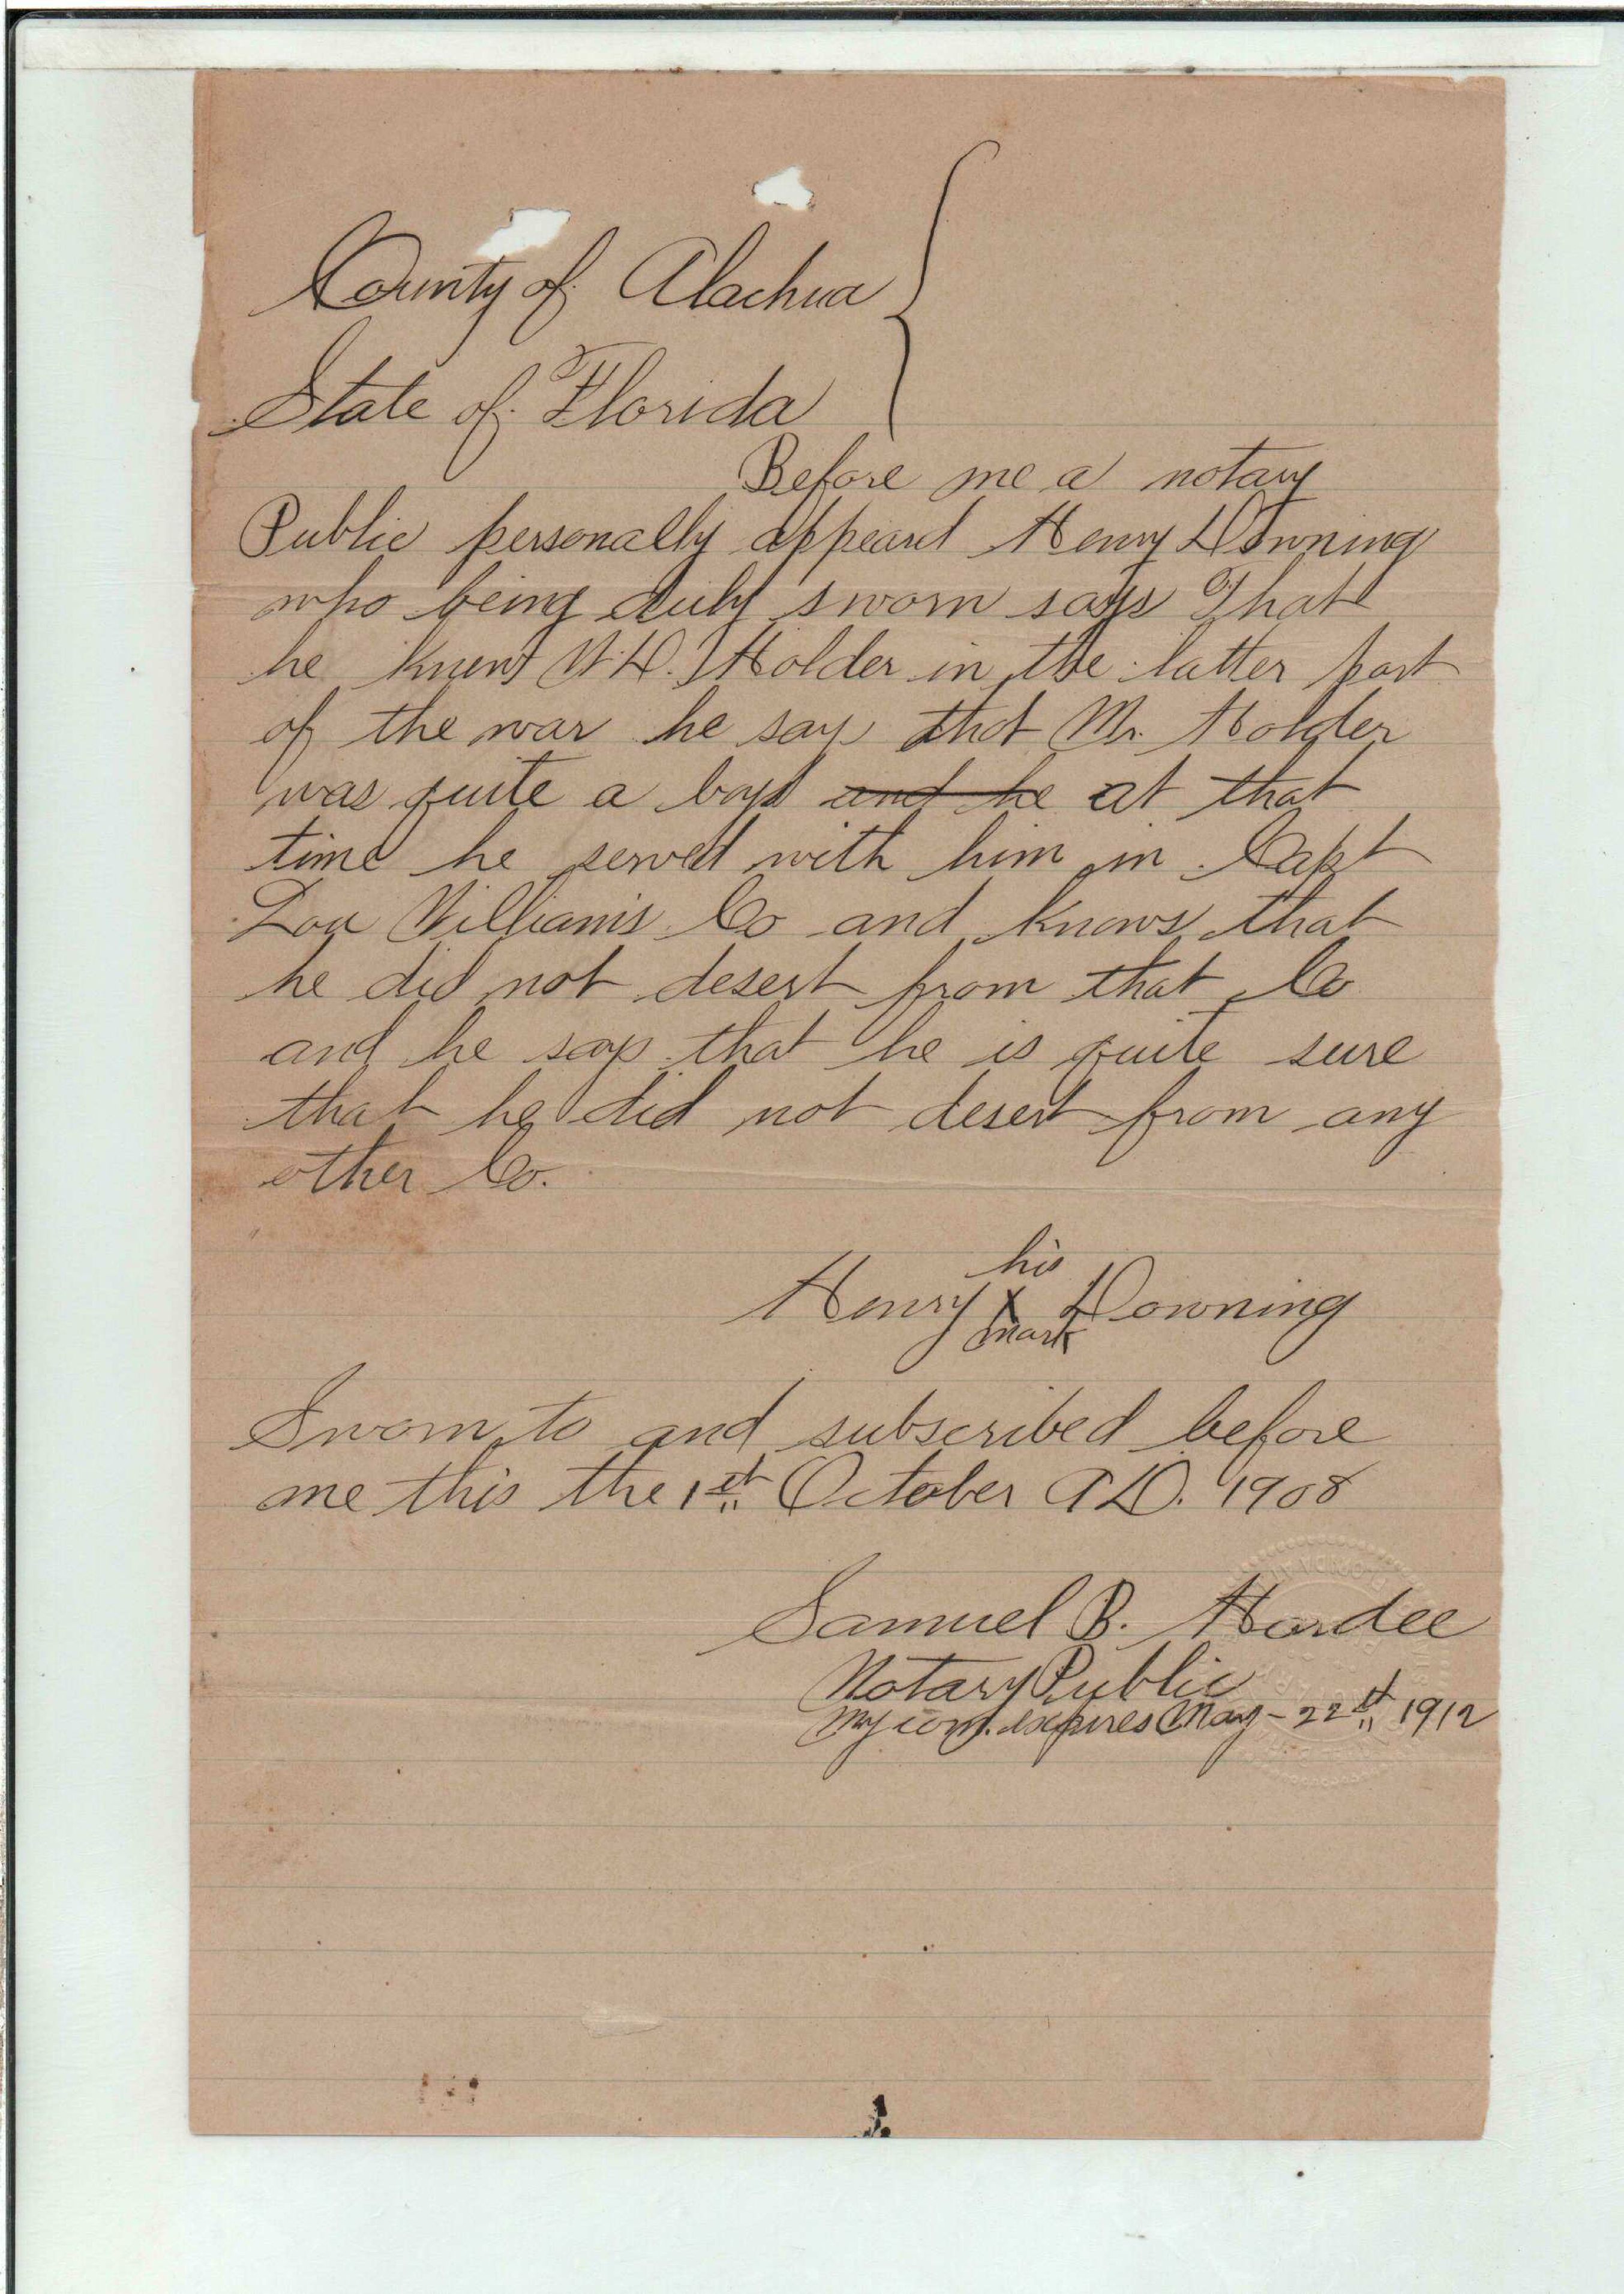 County of Alachua
State of Florida
Before me a notary
Public personally appeard Henry Downing
who being duly sworn says That
he knew W.D. Holder in the latter part
of the war he say that Mr. Holder
was quite a boy and he at that
time he served with him in Capt
Lou William's Co and knows that
he did not desert from that Co
and he says that he is quite sure
that he did not desert from any
other Co.
his
Henry X Downing
mark
Sworn to and subscribed before
me this the 1st October A.D. 1908
Samuel B. Hardee
Notary Public
My com. expires May - 22st 1912